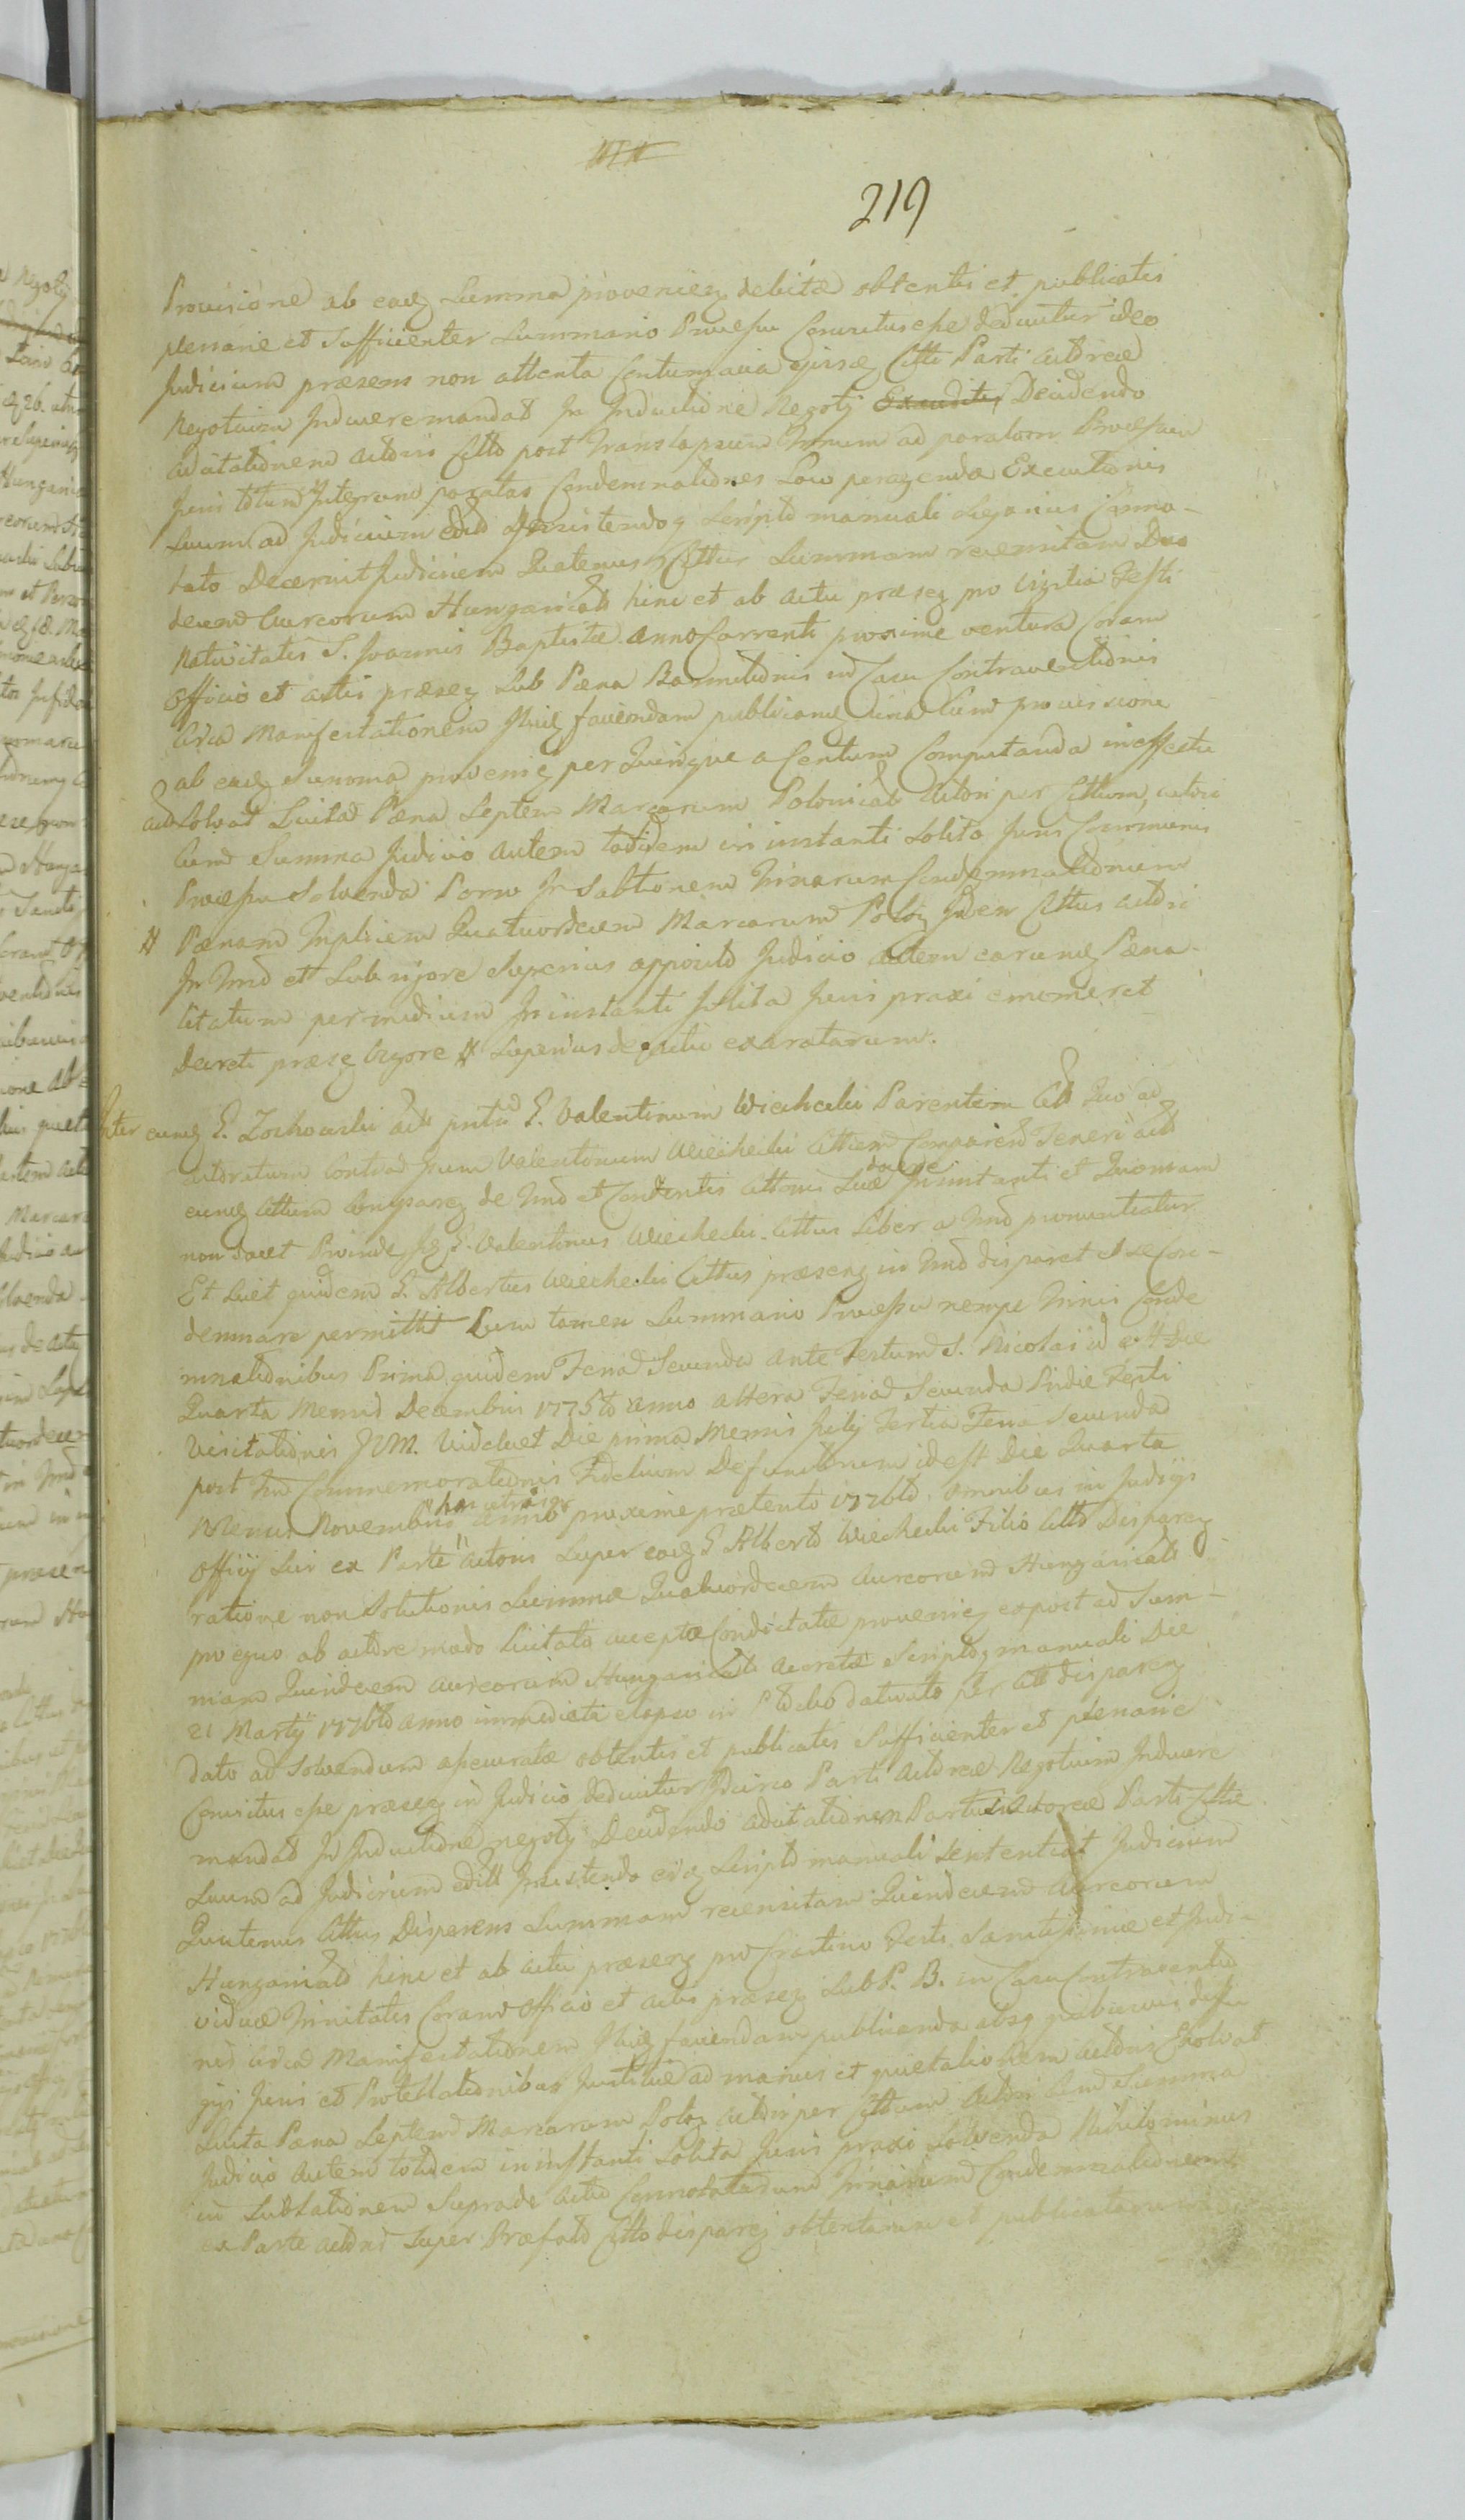 219
Provisione ab eadq Summa provenieq debitæ obtentis et publicatis
plenarie et Sufficienter Summario Processu Convictus esse deducitur ideo
Judicium præsens non attenta Contumacia ejusq Citti Parti Actoreæ
Negotium Inducere mandat In Inductione Negotij Decidendo
ad citationem Actoris Citto post Translapsum Trinum ad paratam Processum
Juris totum Integrum pogatas Condemnationes Loco peragendæ Executionis
Suum ad Judicium edito Insistendoq Scripto manuali Superius Conno-
tato Decernit Judicium Quatenus Cittus Summam recensitam Duo
decem Aureorum Hungaricalb hinc et ab actu præseq pro Vigilia Festi
Nativitatis S. Joannis Baptistæ Anno Currenti proxime ventura Coram
Officio et actis præseq Sub Pæna Bannitionis in Casu Contraventionis
Circa Manifestationem Huiq faciendam publicanq una Cum provisione
ab eadq Summa provenieq per Quinque a Centum Computanda in effectu
Solvat Luita Pæna Septem Marcarum Polonicalb Actori per Cittum, actori
Cum Summa Judicio Autem totidem in instanti Solito Juris Communis
Processu Solvenda Porro In Sabtionem Trinarum Condemnationum
# Pænam Triplicem Quatuordecem Marcarum Poloq Idem Cittus Actori
In Tmo et Sub rigore Superius apposito Judicio Autem earumq Pæna-
litatum per medium In instanti Solita Juris praxi enumeret
Decreti præseq Vigore # Superius de actu exaratarum.
Inter eumq G. Zochowski Actorem G. Valentinum Wiechecki Parentem Quo ad
Actoratum Contra Ipsum Valentinum Wiechecki Cittum Compareq Teneri
eumq Cittum Compareq de Tmo et Contentis Cittonis Suæ docere Insistanti et Quoniam
non docet Proinde Is G. Valentinus Wiechecki Cittus Liber a Tmo pronuntiatur
Et Licet quidem G. Albertus Wiechecki Cittus præseq in Tmo disparet et se Con-
demnare permittit Cum tamen Summario Processu nempe Trinis Conde
mnationibus Prima quidem Feria Secunda ante Festum S. Nicolai id est Die
Quarta Mensis Decembris 1775to anno altera Feria Secunda Pridie Festi
Visitationis BVM. Videlicet Die prima Mensis Julij Tertia Feria Secunda
post Commemorationis Fidelium Defunctorum id est Die Quarta
Mensis Novembris anno proxime prætento 1776to omnibus in Judijs
Officij Sui ex Parte Actoris Super eodq G Alberto Wiechecki Filio Citto Dispareq
ratione non Solutionis Summæ Quatuordecem Aureorum Hungaricalb
pro equo ab actore modo Licitato acceptæ Condictatæ provenieq expost ad Sum-
mam Quindecem Aureorum Hungaricalb Accretæ Scriptoq manuali Die
21 Martij 1776to anno immediate elapso in datuato per Citt dispareq
dato ad Solvendum assecuratæ obtentis et publicatis Sufficienter et plenarie
Convictus esse præseq in Judicio deducitur Idcirco Parti Actoreæ Negotium Inducere
mandat In Inductione negotij Decidendo ad citationem Partis Actoreæ Parti Cittæ
Suum ad Judicium edito Insistendo eiq Scripto manuali Sententiat Judicium
Quatenus Cittus Disparens Summam recensitam Quindecem Aureorum
Hungaricalb hinc et ab actu præseq pro Crastino Festi Sanctissimæ et Indi-
viduæ Trinitatis Coram Officio et actis præseq Sub P. B. in Casu Contraventio
nis Circa Manifestationem Huiq faciendam publicanda absq quibusvis diffu
gijs Juris et Protestationibus Justitiæ ad manus et quietationem Actoris Exolvat
Luita Pæna Septem Marcarum Poloq Actori per Cittum Actori Cum Summa
Judicio Autem totidem in instanti Solita Juris praxi Solvenda Nihilominus
in Sublationem Supradi Actu Connotatarum Trinarum Condemnationem
ex Parte Actoris Super Præfato Citto dispareq obtentarum et publicatarum